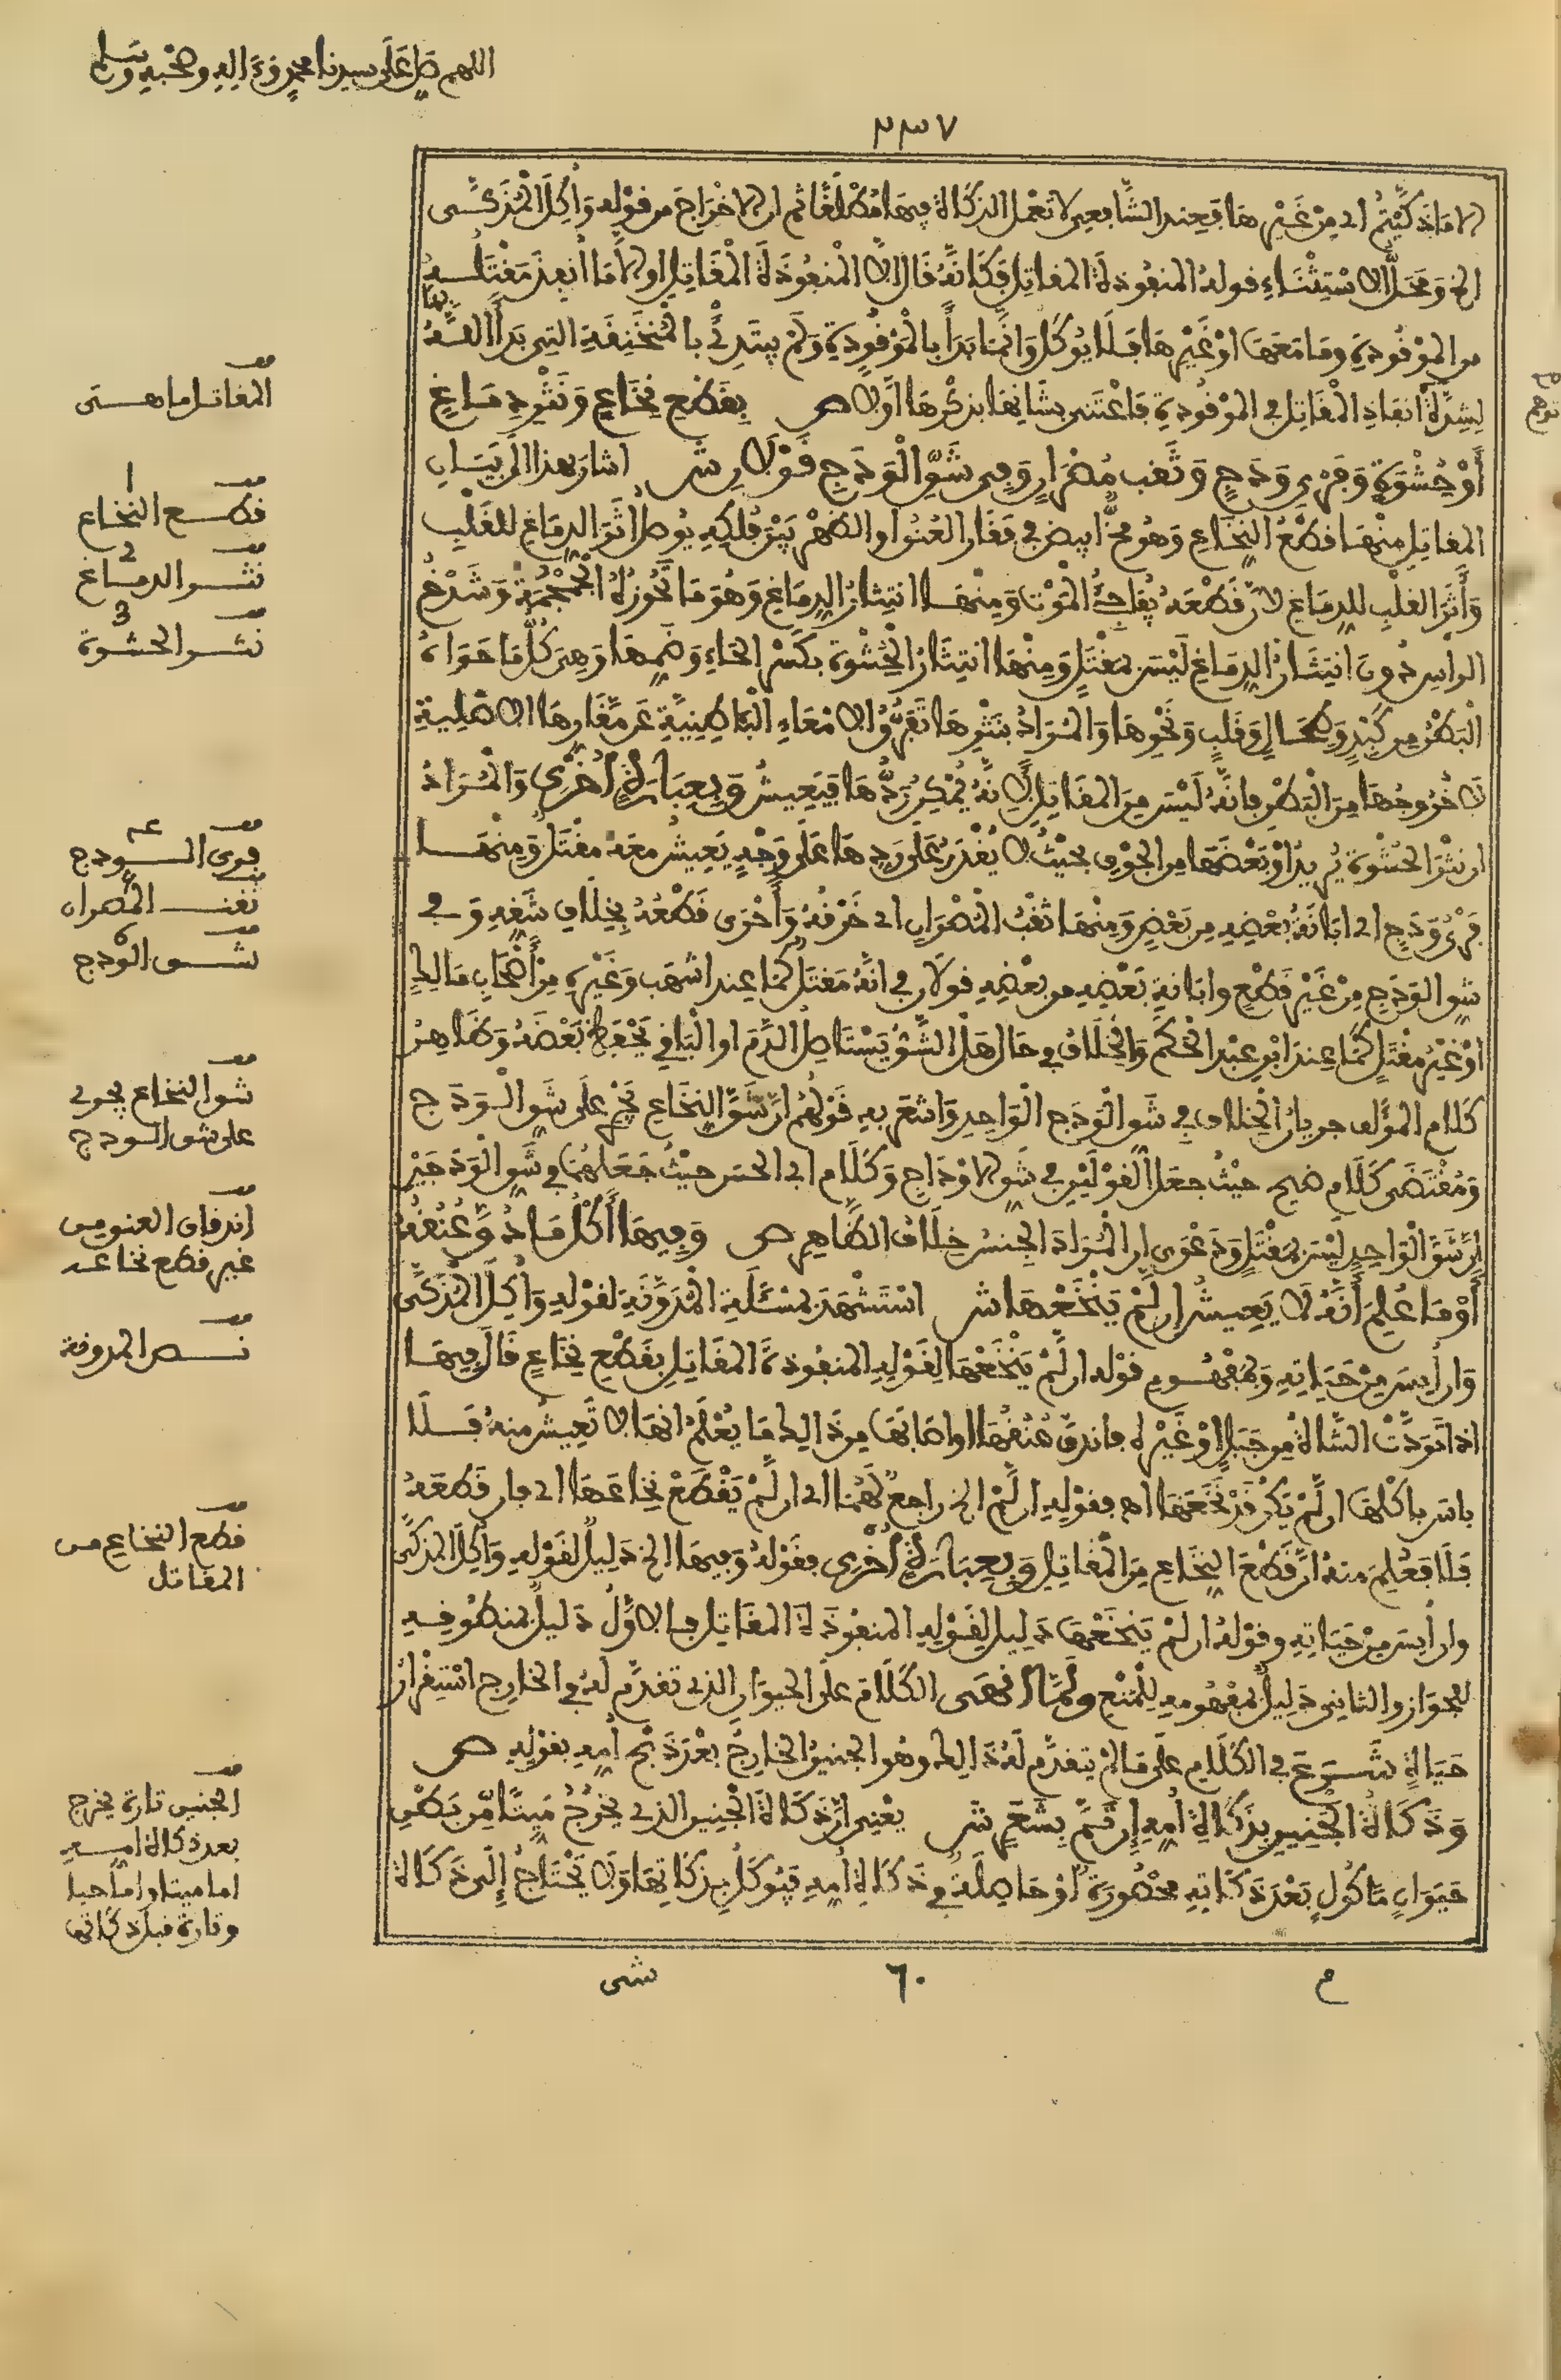 اللهم صل على سيدنا محمد وعلى اله وصحبه وسلم
٢٣٧
الا ما ذكيتم اى من غيرها فعند الشافعى لا تعمل الذكاة فيها مطلقا ثم ان الاخراج من قوله واكل المذكى
الخ ومحل الاستثناء قوله المنفوذة المقاتل فكانه قال الا المنفوذة المقاتل او الا ما انفذ مقتله
من الموقوذة وما معها او غيرها فلا يوكل وانما بدأ بالموقوذة ولم يبتدئ بالمنخنقة التى بدأ الله بها
لشدة انفاذ المقاتل فى الموقوذة فاعتنى بشانها بذكرها اولا ص بقطع نخاع ونثر دماغ
أو حشوة وفرى ودج وثقب مصران وفى شق الودج قولان ش اشار بهذا الى بيان
المقاتل منها قطع النخاع وهو مخ ابيض فى فقار العنق او الظهر يتوقلكه يوصل اثر الدماغ للقلب
وأثر القلب للدماغ لان قطعه يفاجئ الموت ومنها انتثار الدماغ وهو ما تحوزه الجمجمة وشدخ
الراس دون انتثار الدماغ ليس بمقتل ومنها انتثار الحشوة بكسر الحاء وضمها وهى كل ما حواه
البطن من كبد وطحال وقلب ونحوها والمراد بنثرها تفرق الامعاء الباطنية عن مقارها الاصلية
لا خروجها من البطن فانه ليس من المقاتل لانه يمكن ردها فيعيش وبعبارة أخرى والمراد
ان نثر الحشوة يريد او بعضها من الجوف بحيث لا يقدر على ردها على وجه يعيش معه مقتل ومنها
فرى ودج اى ابانة بعضه من بعض ومنها ثقب المصران اى خرقه وأحرى قطعه بخلاف شقه وفى
شق الودج من غير قطع وابانة بعضه من بعضه قولان فى انه مقتل كما عند اشهب وغيره من أصحاب مالك
او غير مقتل كما عند ابن عبد الحكم والخلاف فى حال هل الشق يستاصل الدم او الباقى يحفظ بعضه وظاهر
كلام المؤلف جريان الخلاف فى شق الودج الواحد واشعر به قولهم ان شق النخاع يجرى على شق الودج
ومقتضى كلام ضيح حيث جعل القولين فى شق الاوداج وكلام ابى الحسن حيث جعلهما فى شق الودجين
ان شق الواحد ليس بمقتل ودعوى ان المراد الجنس خلاف الظاهر ص وفيها أكل ما دق عنقه
أو ما علم أنه لا يعيش ان لم ينخعها ش استشهد بمسئلة المدونة لقوله وأكل المذكى
وان أيس من حياته وبمفهوم قوله ان لم ينخعها لقوله المنفوذة المقاتل بقطع نخاع قال فيها
اذا تردت الشاة من جبل او غيره فاندق عنقها او اصابها من ذالك ما يعلم انها لا تعيش منه فلا
باس باكلها ان لم يكن قد نخعها اه فقوله ان لم الخ راجع لهما اى ان لم يقطع نخاعها اى فان قطعه
فلا فعلم منه ان قطع النخاع من المقاتل وبعبارة أخرى فقوله وفيها الخ دليل لقوله وأكل المذكى
وان أيس من حياته وقوله ان لم ينخعها دليل لقوله المنفوذة المقاتل فالاول دليل لمنطوقه
للجواز والثانى دليل بمفهومه للمنع ولما انهى الكلام على الحيوان الذى تقدم له فى الخارج استقرار
حياة شرع فى الكلام على ما لم يتقدم له ذالك وهو الجنين الخارج بعد ذبح أمه بقوله ص
وذكاة الجنين بذكاة أمه ان تم بشعر ش يعنى ان ذكاة الجنين الذى يخرج ميتا من بطن
حيوان ماكول بعد ذكاته محصورة او حاصلة فى ذكاة أمه فيوكل بذكاتها ولا يحتاج إلى ذكاة
م ٦٠ شى
المقاتل ما هى
1
قطع النخاع
2
نثر الدماغ
3
نثر الحشوة
فرى الودج
ثقب المصران
شق الودج
شق النخاع يجرى
على شق الودج
اندقاق العنق من
غير قطع نخاعه
نص المدونة
قطع النخاع من
المقاتل
الجنين تارة يخرج
بعد ذكاة امه
اما ميتا واما حيا
وتارة قبل ذكاتها